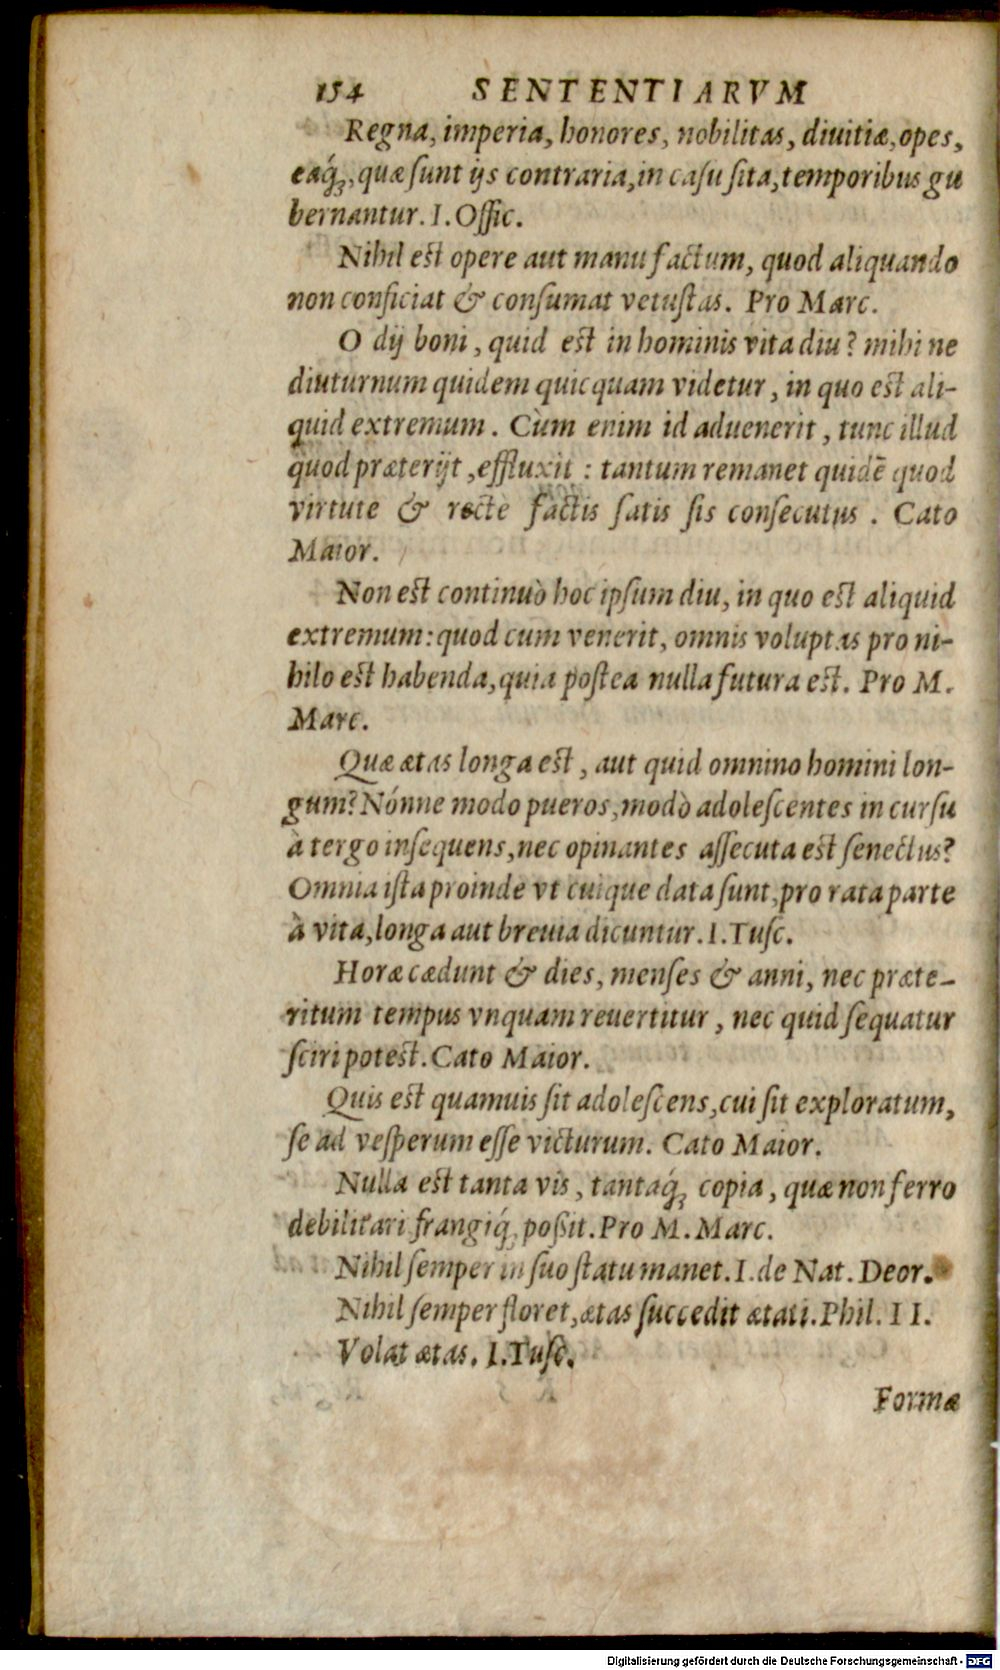 154 SENTENTIARVM
Regna, imperia, honores, nobilitas, diuitiæ, opes,
eaq́ꝫ, quæ ſunt ijs contraria, in caſu ſita, temporibus gu
bernantur. I. Offic.
Nihil est opere aut manu factum, quod aliquando
non conficiat & conſumat vetuſtas. Pro Marc.
O dij boni, quid est in hominis vita diu? mihi ne
diuturnum quidem quicquam videtur, in quo est ali-
quid extremum. Cùm enim id aduenerit, tunc illud
quod præterijt, effluxit: tantum remanet quidē quod
virtute & rectè factis ſatis ſis conſecutus. Cato
Maior.
Non est continuò hoc ipſum diu, in quo est aliquid
extremum: quod cum venerit, omnis voluptas pro ni-
hilo est habenda, quia poſtea nulla futura est. Pro M.
Marc.
Quæ ætas longa est, aut quid omnino homini lon-
gum? Nónne modo pueros, modò adoleſcentes in curſu
à tergo inſequens, nec opinantes aſſecuta est ſenectus?
Omnia iſta proinde vt cuique data ſunt, pro rata parte
à vita, longa aut breuia dicuntur. I. Tuſc.
Horæ cædunt & dies, menſes & anni, nec præte-
ritum tempus vnquam reuertitur, nec quid ſequatur
ſciri potest. Cato Maior.
Quis est quamuis ſit adoleſcens, cui ſit exploratum,
ſe ad veſperum eſſe victurum. Cato Maior.
Nulla est tanta vis, tantaq́ꝫ copia, quæ non ferro
debilitari frangiq́ꝫ poßit. Pro M. Marc.
Nihil ſemper in ſuo ſtatu manet. I. de Nat. Deor.
Nihil ſemper floret, ætas ſuccedit ætati. Phil. II.
Volat ætas. I. Tuſc.
Formæ
Digitalisierung gefördert durch die Deutsche Forschungsgemeinschaft - DFG